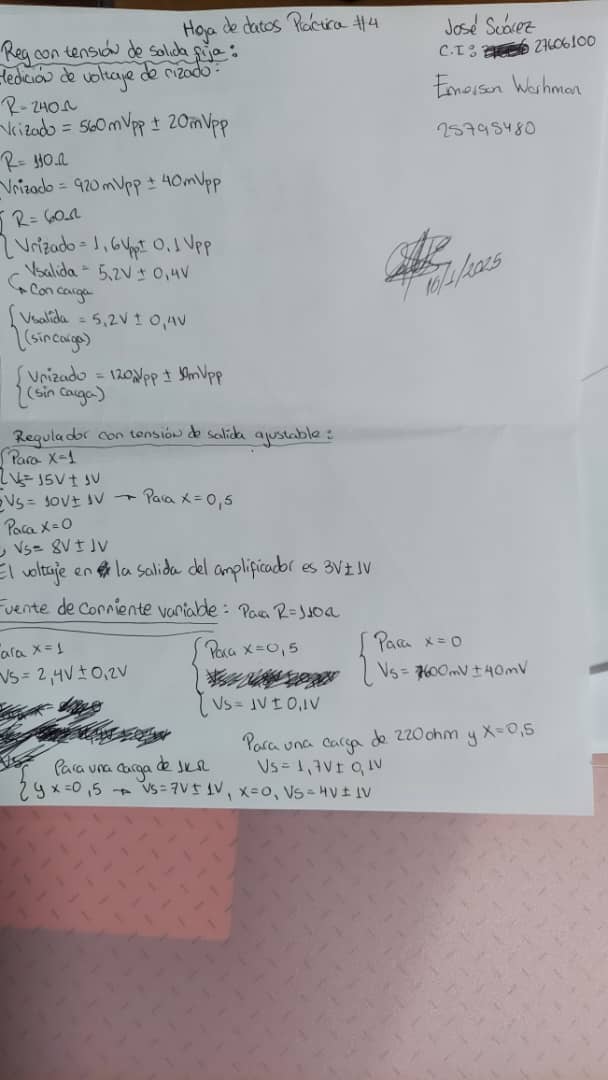 Hoja de datos Práctica #4
José Suárez
C.I: 27606100
Emerson
25795480
Reg con tensión de salida fija:
Medición de voltaje de rizado:
R=240Ω
Vrizado = 560mVpp ± 20mVpp
R=110Ω
Vrizado = 920mVpp ± 40mVpp
R=60Ω
Vrizado = 1,6Vpp ± 0,1Vpp
Vsalida = 5,2V ± 0,4V
→ Con carga
Vsalida = 5,2V ± 0,4V
(sin carga)
Vrizado = 120mVpp ± 10mVpp
(sin carga)
16/1/2025
Regulador con tensión de salida ajustable:
Para x=1
Vs= 15V ± 1V
Vs= 10V ± 1V → Para x=0,5
Para x=0
Vs= 8V ± 1V
El voltaje en la salida del amplificador es 3V±1V
Fuente de corriente variable: Para R=110Ω
Para x=1
Vs= 2,4V ± 0,2V
Para x=0,5
Vs= 1V ± 0,1V
Para x=0
Vs= 600mV ± 40mV
Para una carga de 220ohm y x=0,5
Vs= 1,7V ± 0,1V
Para una carga de 1KΩ
y x=0,5 → Vs=7V ± 1V, x=0, Vs=4V ± 1V